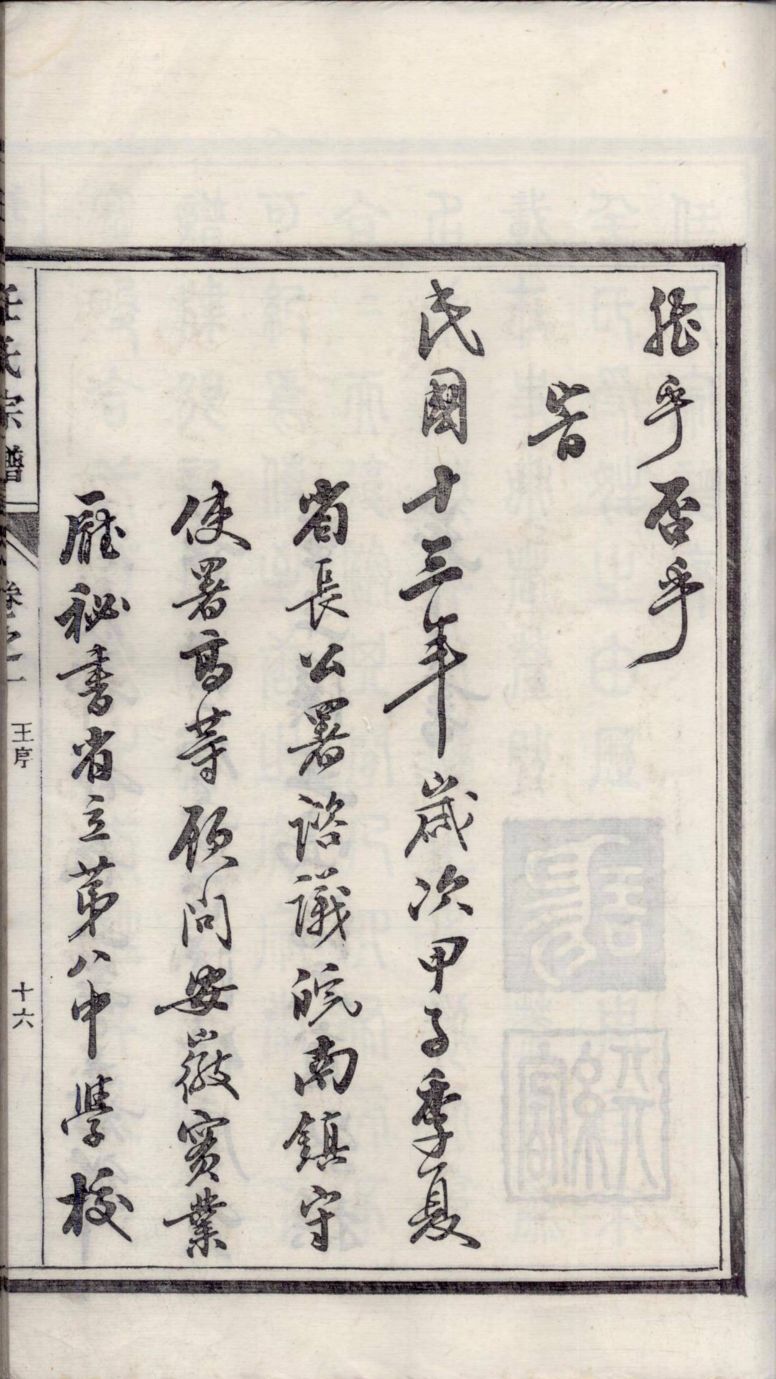 能乎否乎
旹
民國十三年歲次甲子季夏
省長公署諮議皖南鎮守
使署高等顧問安徽實業
廳秘書省立第八中學校
氏宗譜
卷之一
王序
十六